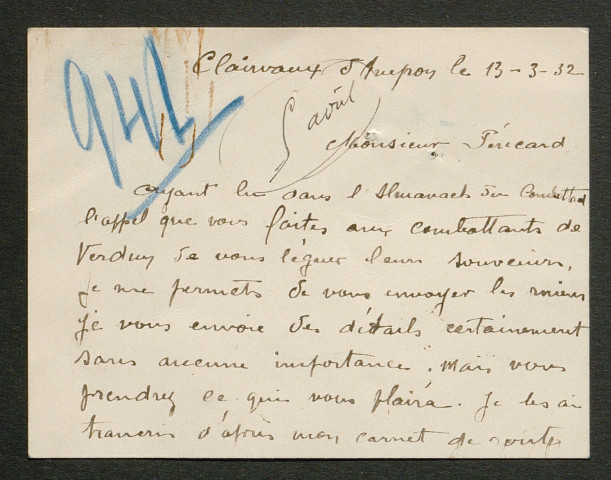 Clairvaux d'Aveyron le 13-3-32
942
5 août
Monsieur Péricard
Ayant lu dans l'Almanach du Combattant
l'appel que vous faites aux combattants de
Verdun de vous léguer leurs souvenirs,
je me permets de vous envoyer les miens
je vous envoie des détails certainement
sans aucune importance, mais vous
prendrez ce qui vous plaira. Je les ai
transcris d'après mon carnet de route